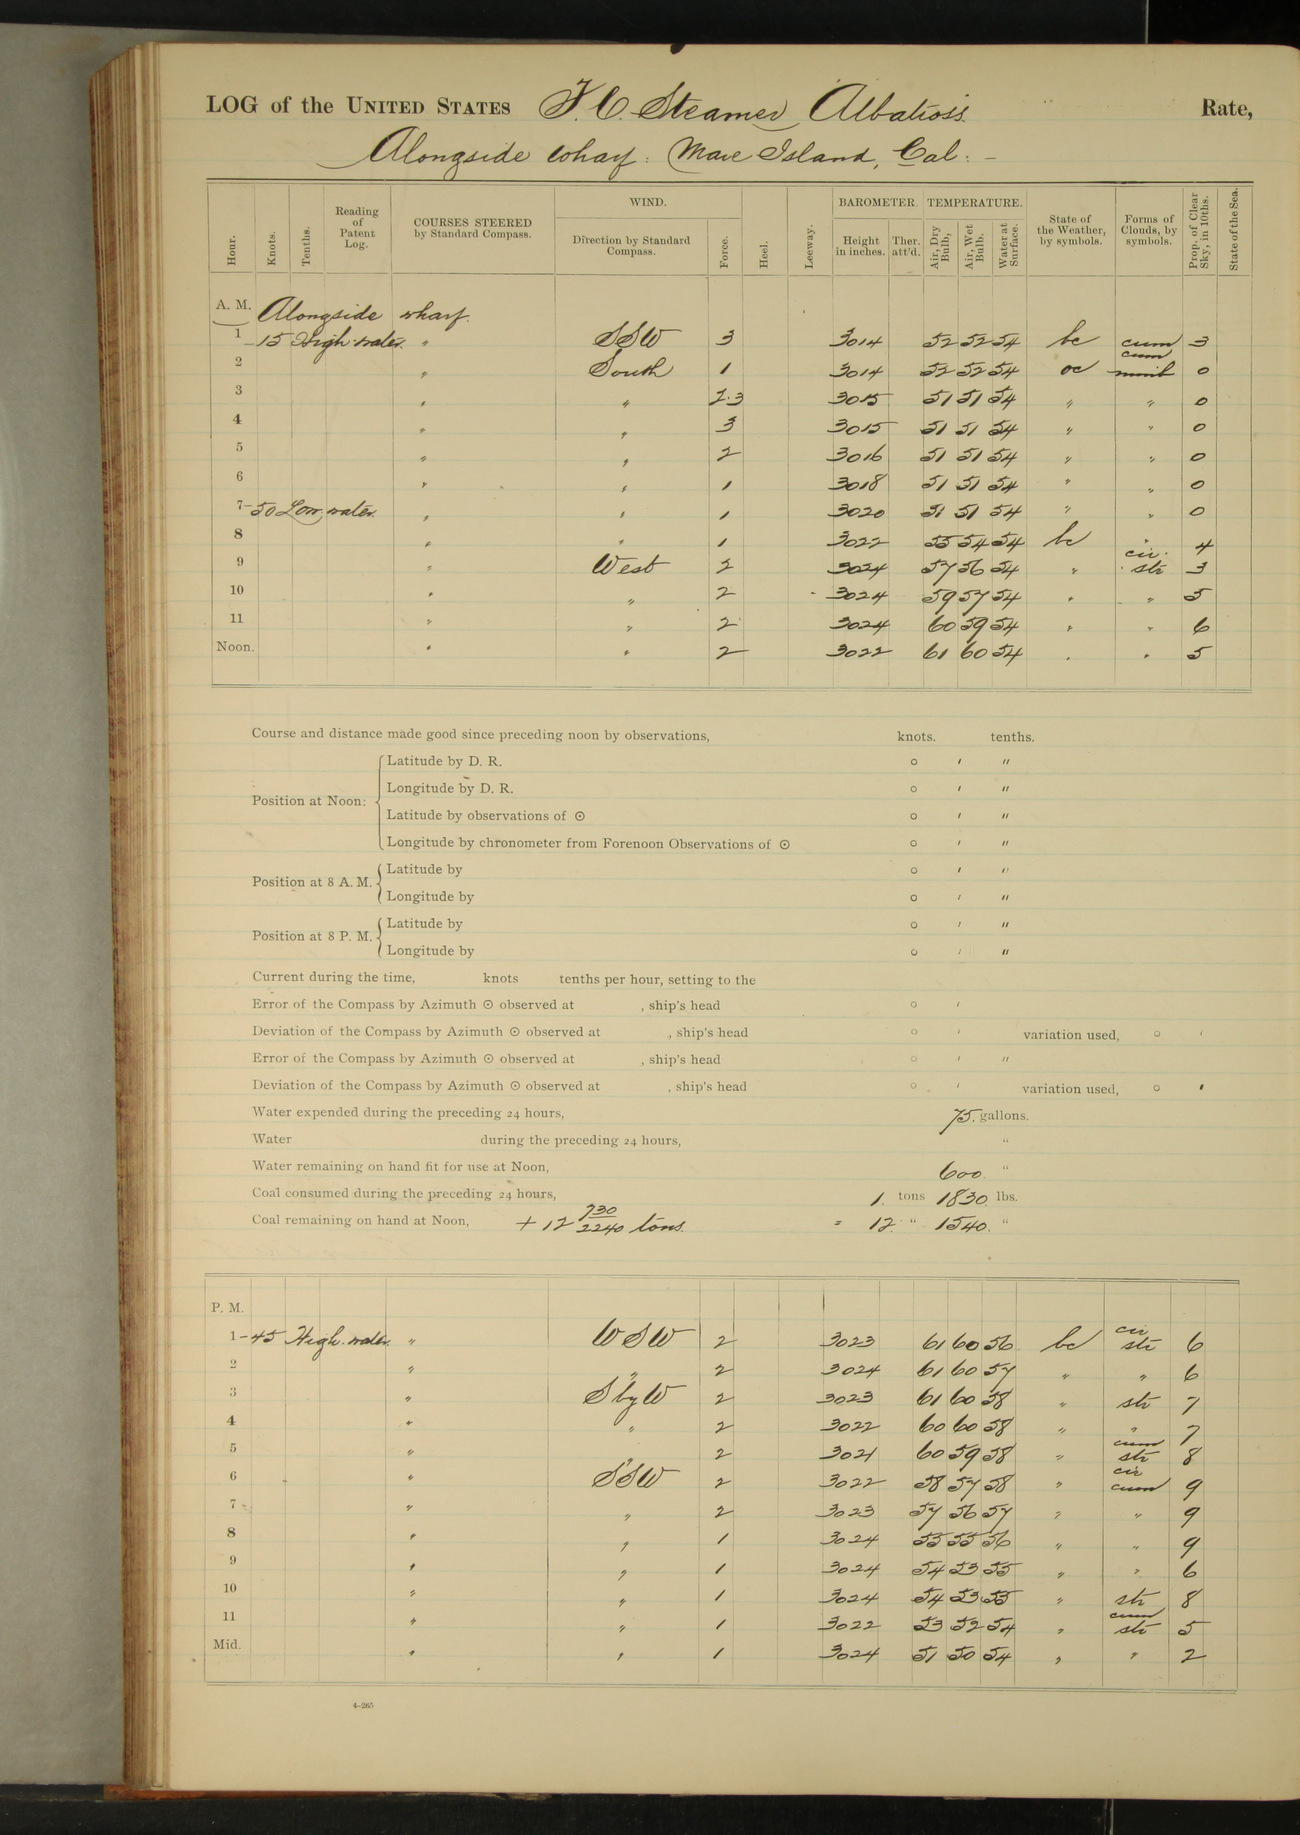 LOG of the UNITED STATES F. C. Steamer Albatross Rate,
Alongside wharf: Mare Island, Cal: -
Hour. Knots. Tenths. Reading of Patent Log. COURSES STEERED by Standard Compass. WIND. Direction by Standard Compass. Force. Heel. Leeway. BAROMETER. Height in inches. Ther. att'd. TEMPERATURE. Air, Dry Bulb. Air, Wet Bulb. Water at Surface. State of the Weather, by symbols. Forms of Clouds, by symbols. Prop. of Clear Sky, in 10ths. State of the Sea.
A. M. Alongside wharf.
1 -15 High water. " SSW 3 3014 52 52 54 bc cum 3
2 " South 1 3014 52 52 54 oc cum nimb 0
3 " " 2.3 3015 51 51 54 " " 0
4 " " 3 3015 51 51 54 " " 0
5 " " 2 3016 51 51 54 " " 0
6 " " 1 3018 51 51 54 " " 0
7 -50 Low water. " " 1 3020 51 51 54 " " 0
8 " " 1 3022 55 54 54 bc " 4
9 " West 2 3024 57 56 54 " cir. str 3
10 " " 2 3024 59 57 54 " " 5
11 " " 2 3024 60 59 54 " " 6
Noon. " " 2 3022 61 60 54 " " 5
Course and distance made good since preceding noon by observations, knots. tenths.
Position at Noon: Latitude by D. R. ° ′ ″
Longitude by D. R. ° ′ ″
Latitude by observations of ☉ ° ′ ″
Longitude by chronometer from Forenoon Observations of ☉ ° ′ ″
Position at 8 A. M. Latitude by ° ′ ″
Longitude by ° ′ ″
Position at 8 P. M. Latitude by ° ′ ″
Longitude by ° ′ ″
Current during the time, knots tenths per hour, setting to the
Error of the Compass by Azimuth ☉ observed at , ship's head ° ′
Deviation of the Compass by Azimuth ☉ observed at , ship's head ° ′ variation used, ° ′
Error of the Compass by Azimuth ☉ observed at , ship's head ° ′ ″
Deviation of the Compass by Azimuth ☉ observed at , ship's head ° ′ variation used, ° ′
Water expended during the preceding 24 hours, 75. gallons.
Water during the preceding 24 hours, "
Water remaining on hand fit for use at Noon, 600 "
Coal consumed during the preceding 24 hours, 1. tons 1830. lbs.
Coal remaining on hand at Noon, + 12 730/2240 tons. = 12. " 1540. "
P. M.
1 -45 High water. " WSW 2 3023 61 60 56 bc cir str 6
2 " " 2 3024 61 60 57 " " 6
3 " S by W 2 3023 61 60 58 " str 7
4 " " 2 3022 60 60 58 " " 7
5 " " 2 3021 60 59 58 " cum str 8
6 " SSW 2 3022 58 57 58 " cir cum 9
7 " " 2 3023 57 56 57 " " 9
8 " " 1 3024 55 55 56 " " 9
9 " " 1 3024 54 53 55 " " 6
10 " " 1 3024 54 53 55 " str 8
11 " " 1 3022 53 52 54 " cum str 5
Mid. " " 1 3024 51 50 54 " " 2
4-265